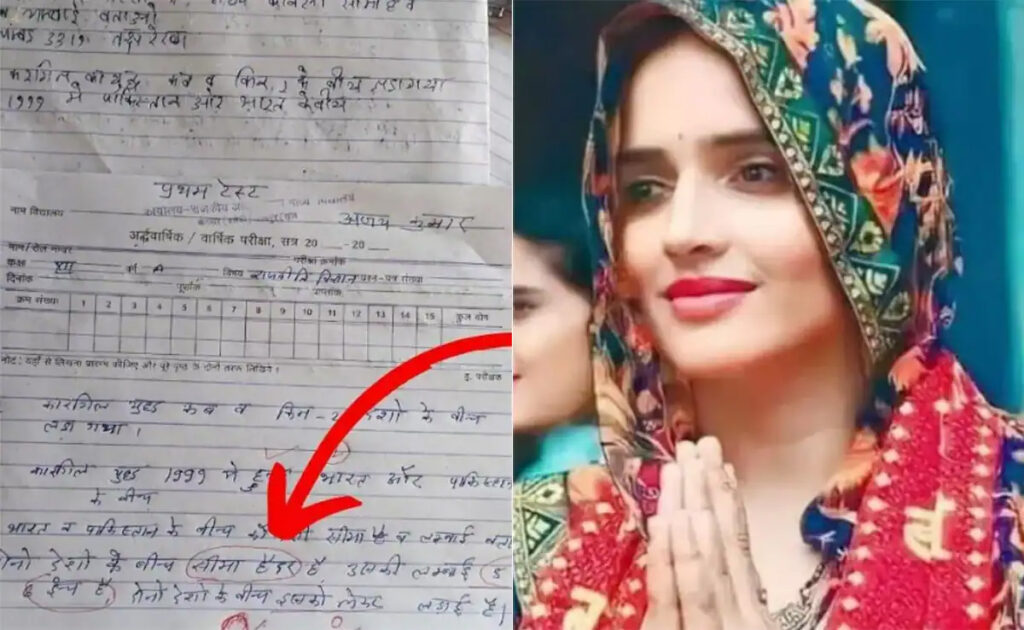 लम्बाई बताओ
3319 रेखा
कारगिल का युद्ध कब व किन 2 के बीच लडा गया
1999 मे पाकिस्तान और भारत के बीच
प्रथम टेस्ट
नाम विद्यालय अजय कुमार
अर्द्धवार्षिक / वार्षिक परीक्षा, सत्र 20 -20
नाम/रोल नम्बर परीक्षा क्रमांक
कक्षा XII वर्ग A विषय राजनीति विज्ञान प्रश्न-पत्र संख्या
दिनांक पूर्णांक प्राप्तांक
क्रम संख्या 1 2 3 4 5 6 7 8 9 10 11 12 13 14 15 कुल योग
नोट : यहाँ से लिखना प्रारम्भ कीजिए और पूरे पृष्ठ के दोनों तरफ लिखिये।
ह. परीक्षक
कारगिल युद्ध कब व किन-2 देशो के बीच
लडा गया।
कारगिल युद्ध 1999 मे हु भारत और पाकिस्तान
के बीच
भारत व पाकिस्तान के बीच सीमा है व लम्बाई
दोनो देशो के बीच सीमा हैदर है उसकी लम्बाई 5
6 इंच है, दोनो देशो के बीच इसको लेकर लडाई है।